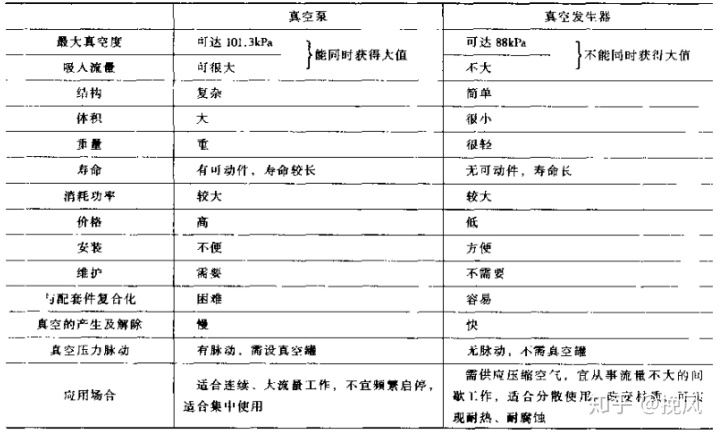 真空泵 真空发生器
最大真空度 可达 101.3kPa 能同时获得大值 可达 88kPa 不能同时获得大值
吸入流量 可很大 不大
结构 复杂 简单
体积 大 很小
重量 重 很轻
寿命 有可动件，寿命较长 无可动件，寿命长
消耗功率 较大 较大
价格 高 低
安装 不便 方便
维护 需要 不需要
与配套件复合化 困难 容易
真空的产生及解除 慢 快
真空压力脉动 有脉动，需设真空罐 无脉动，不需真空罐
应用场合 适合连续、大流量工作，不宜频繁启停，
适合集中使用
需供应压缩空气，宜从事流量不大的间
歇工作，适合分散使用。 可实
现耐热、耐腐蚀
知乎 @挽风